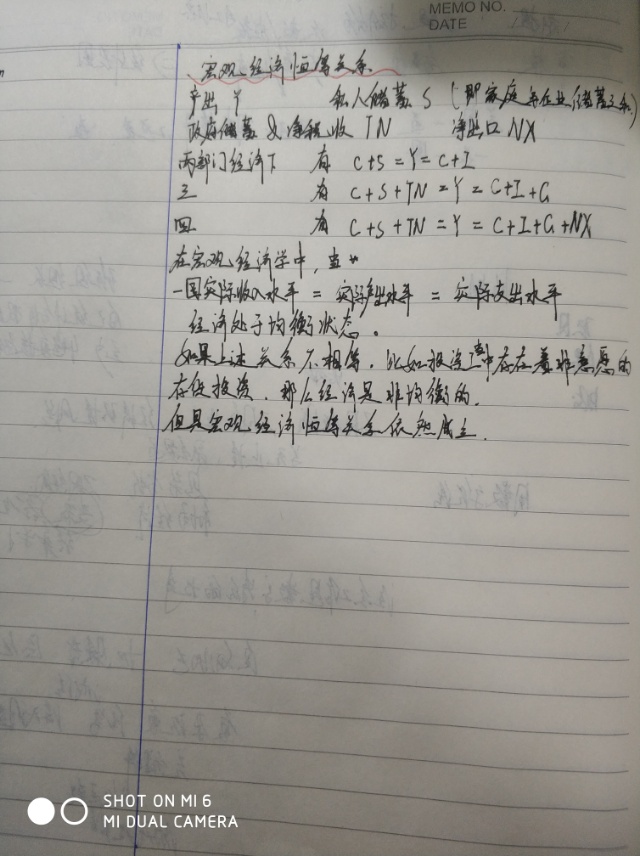 MEMO NO.
DATE
宏观经济恒等关系
产出 Y 私人储蓄 S (即家庭和企业储蓄之和)
政府储蓄 & 净税收 TN 净出口 NX
两部门经济下 有 C+S=Y=C+I
三 有 C+S+TN=Y=C+I+G
四 有 C+S+TN=Y=C+I+G+NX
在宏观经济学中,当
一国实际收入水平 = 实际产出水平 = 实际支出水平
经济处于均衡状态。
如果上述关系不相等,比如投资中存在着非意愿的
存货投资,那么经济是非均衡的,
但是宏观经济恒等关系依然成立.
SHOT ON MI 6
MI DUAL CAMERA